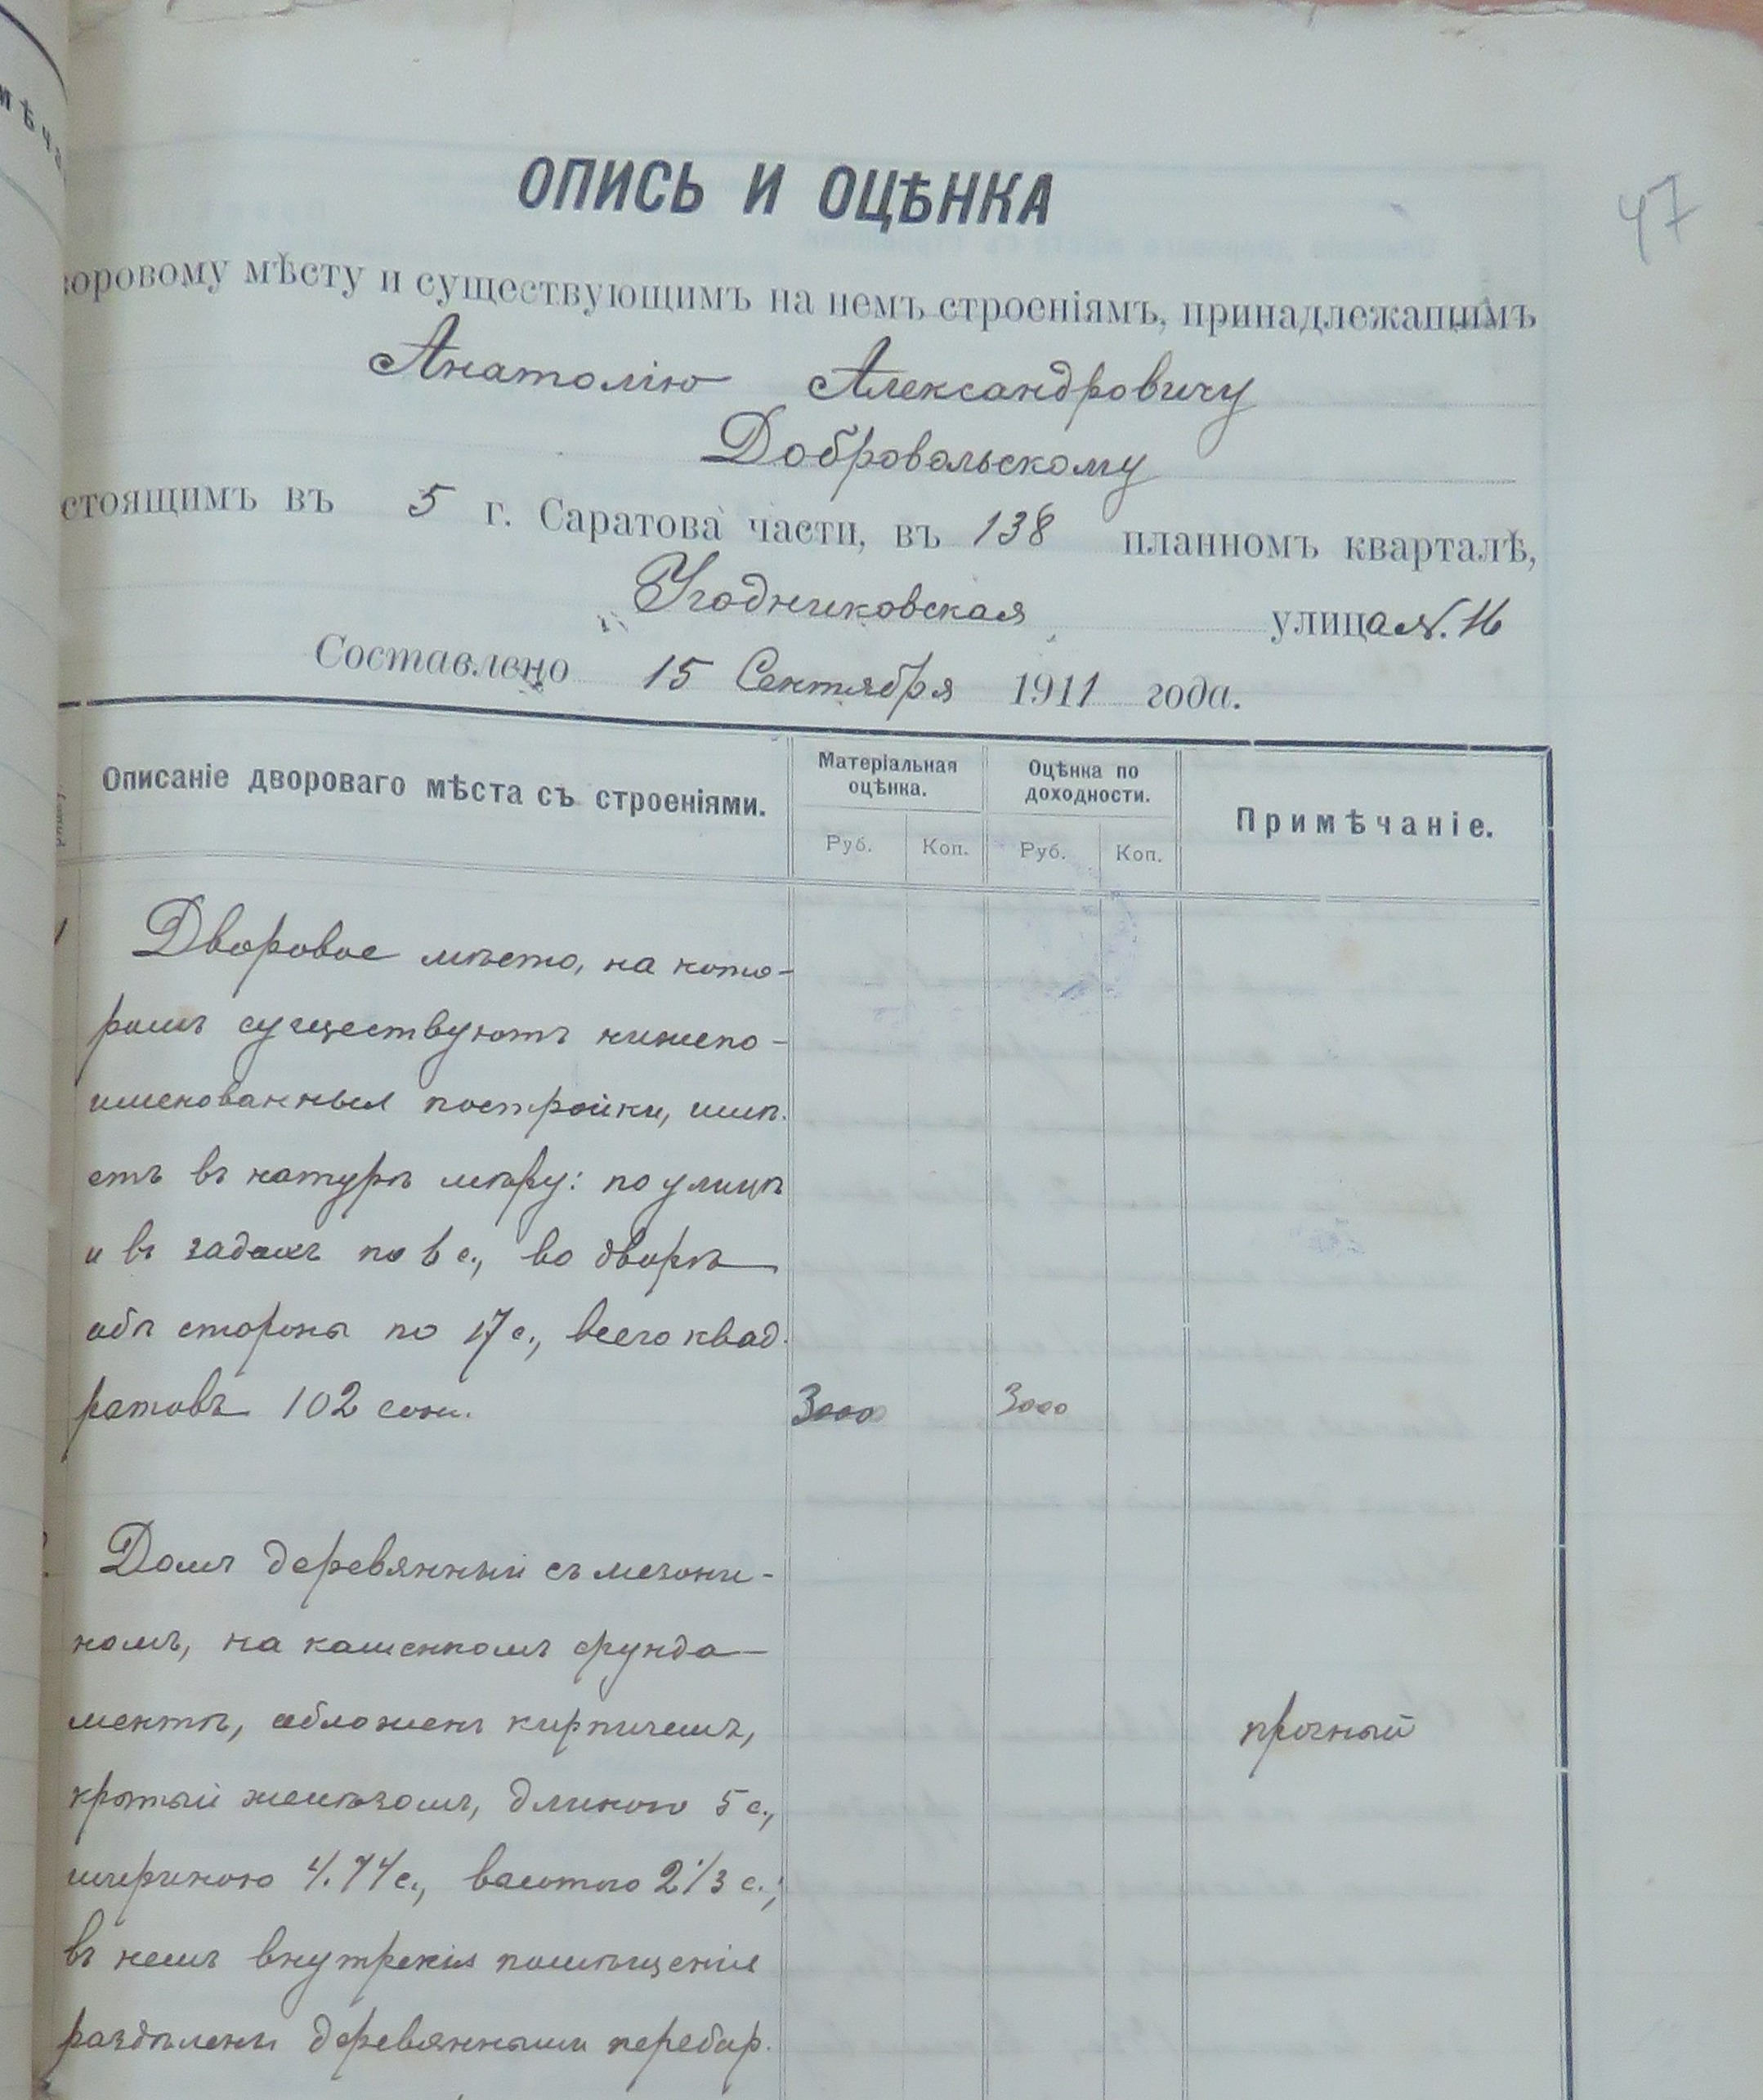 47
ОПИСЬ И ОЦѢНКА
воровому мѣсту и существующимъ на немъ строеніямъ, принадлежащимъ
Анатолію Александровичу
Добровольскому
стоящимъ въ 5 г. Саратова части, въ 138 планномъ кварталѣ,
Угодниковская улица №. 16
Составлено 15 Сентября 1911 года.
Описаніе двороваго мѣста съ строеніями.
Матеріальная оцѣнка.
Руб. Коп.
Оцѣнка по доходности.
Руб. Коп.
Примѣчаніе.
1
Дворовое мѣсто, на кото-
ромъ существуютъ нижепо-
именованныя постройки, имѣ-
етъ въ натурѣ мѣру: по улицѣ
и въ задахъ по 6 с., во дворѣ
обѣ стороны по 17 с., всего квад-
ратовъ 102 саж. 3000 3000
Домъ деревянный съ мезони-
номъ, на каменномъ фунда-
ментѣ, обложенъ кирпичемъ, прочный
крытый желѣзомъ, длиною 5 с.,
шириною 4.74 с., высотою 2 1/3 с.;
въ немъ внутренія помѣщенія
раздѣлены деревянными перебор.